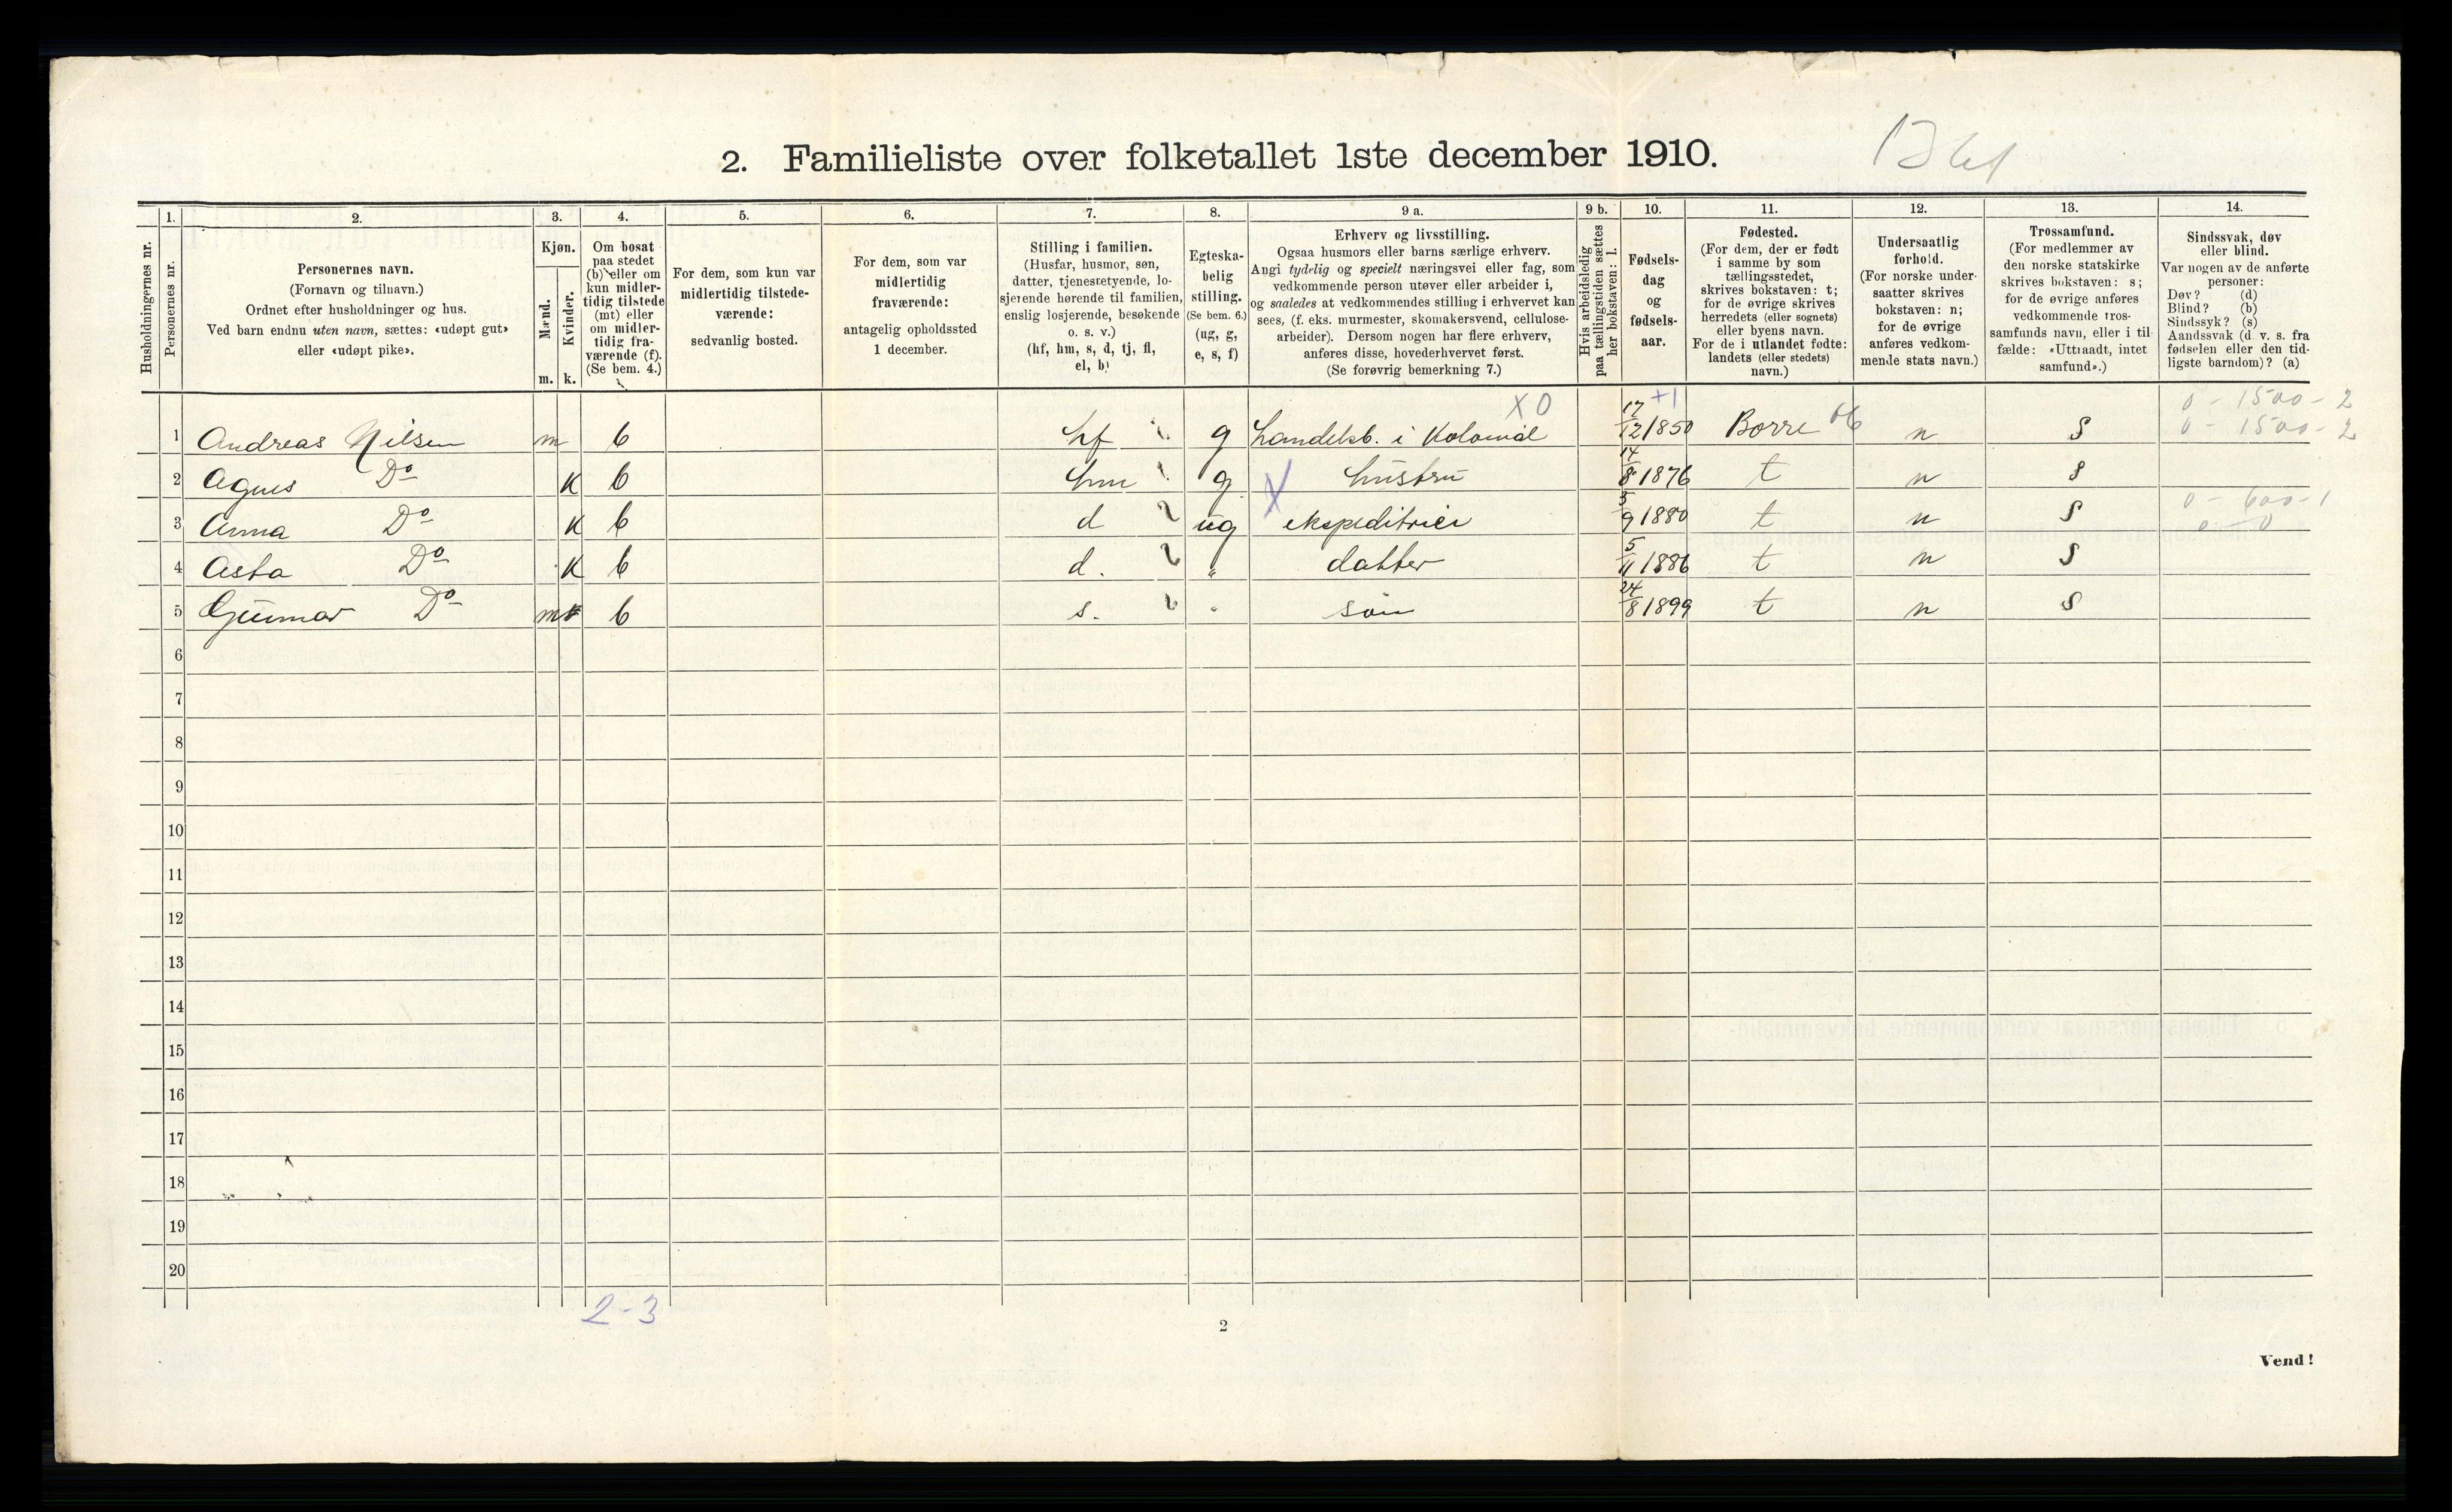 2. Familieliste over folketallet 1ste december 1910.
Husholdningernes nr.
1.
Personernes nr.
2.
Personernes navn.
(Fornavn og tilnavn.)
Ordnet efter husholdninger og hus.
Ved barn endnu uten navn, sættes: «udøpt gut»
eller «udøpt pike».
3.
Kjøn.
Mænd.
Kvinder.
m. k.
4.
Om bosat
paa stedet
(b) eller om
kun midler-
tidig tilstede
(mt) eller
om midler-
tidig fra-
værende (f).
(Se bem. 4.)
5.
For dem, som kun var
midlertidig tilstede-
værende:
sedvanlig bosted.
6.
For dem, som var
midlertidig
fraværende:
antagelig opholdssted
1 december.
7.
Stilling i familien.
(Husfar, husmor, søn,
datter, tjenestetyende, lo-
sjerende hørende til familien,
enslig losjerende, besøkende
o. s. v.)
(hf, hm, s, d, tj, fl,
el, b)
8.
Egteska-
belig
stilling.
(Se bem. 6.)
(ug, g,
e, s, f)
9 a.
Erhverv og livsstilling.
Ogsaa husmors eller barns særlige erhverv.
Angi tydelig og specielt næringsvei eller fag, som
vedkommende person utøver eller arbeider i,
og saaledes at vedkommendes stilling i erhvervet kan
sees, (f. eks. murmester, skomakersvend, cellulose-
arbeider). Dersom nogen har flere erhverv,
anføres disse, hovederhvervet først.
(Se forøvrig bemerkning 7.)
9 b.
Hvis arbeidsledig
paa tællingstiden sættes
her bokstaven: l.
10.
Fødsels-
dag
og
fødsels-
aar.
11.
Fødested.
(For dem, der er født
i samme by som
tællingsstedet,
skrives bokstaven: t;
for de øvrige skrives
herredets (eller sognets)
eller byens navn.
For de i utlandet fødte:
landets (eller stedets)
navn.)
12.
Undersaatlig
forhold.
(For norske under-
saatter skrives
bokstaven: n;
for de øvrige
anføres vedkom-
mende stats navn.)
13.
Trossamfund.
(For medlemmer av
den norske statskirke
skrives bokstaven: s;
for de øvrige anføres
vedkommende tros-
samfunds navn, eller i til-
fælde: «Uttraadt, intet
samfund».)
14.
Sindssvak, døv
eller blind.
Var nogen av de anførte
personer:
Døv? (d)
Blind? (b)
Sindssyk? (s)
Aandssvak (d. v. s. fra
fødselen eller den tid-
ligste barndom)? (a)
X 0 +1 0 - 1500 - 2
1 Andreas Nilsen m b hf g handelsb. i Kolonial 17/12 1850 Borre 06 n S 0 - 1500 - 2
2 Agnes Do K b hm g X hustru 14/8 1876 t n S
3 Anna Do K b d ug ekspeditrice 5/9 1880 t n S 0 - 600 - 1
4 Asta Do K b d. " datter 5/11 1886 t n S
5 Gunnar Do m b s. " søn 24/8 1899 t n S
6
7
8
9
10
11
12
13
14
15
16
17
18
19
20
2-3
2
Vend!